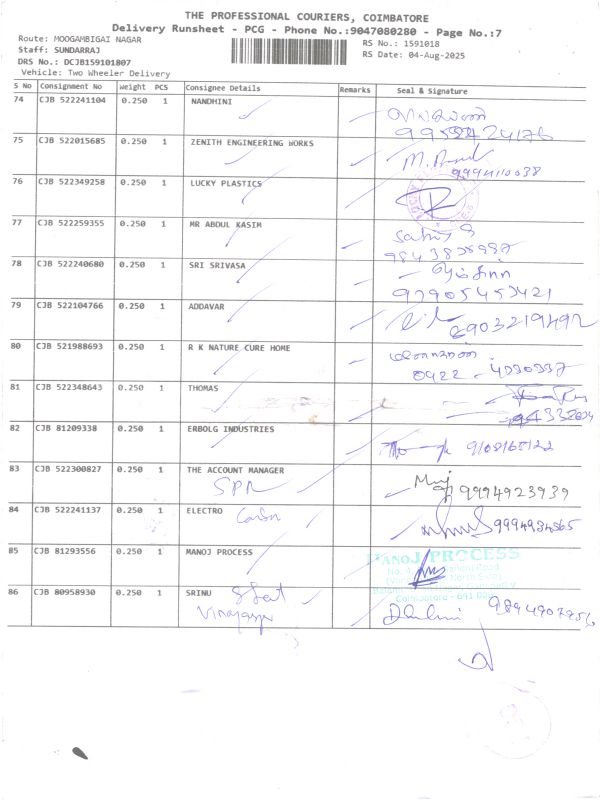 THE PROFESSIONAL COURIERS, COIMBATORE
Delivery Runsheet - PCG - Phone No.:9047080280 - Page No.:7
Route: MOOGAMBIGAI NAGAR
RS No.: 1591018
Staff: SUNDARRAJ
RS Date: 04-Aug-2025
DRS No.: DCJB159101807
Vehicle: Two Wheeler Delivery
S No Consignment No Weight PCS Consignee Details Remarks Seal & Signature
74 CJB 522241104 0.250 1 NANDHINI
75 CJB 522015685 0.250 1 ZENITH ENGINEERING WORKS
9994110038
76 CJB 522349258 0.250 1 LUCKY PLASTICS
77 CJB 522259355 0.250 1 MR ABDUL KASIM
78 CJB 522240680 0.250 1 SRI SRIVASA
79 CJB 522104766 0.250 1 ADDAVAR
8903219492
80 CJB 521988693 0.250 1 R K NATURE CURE HOME
0422 - 4030337
81 CJB 522348643 0.250 1 THOMAS
82 CJB 81209338 0.250 1 ERBOLG INDUSTRIES
83 CJB 522300827 0.250 1 THE ACCOUNT MANAGER
SPR 9994923939
84 CJB 522241137 0.250 1 ELECTRO
9994934565
85 CJB 81293556 0.250 1 MANOJ PROCESS
MANOJ PROCESS
Coimbatore - 641
86 CJB 80958930 0.250 1 SRINU
9894907956